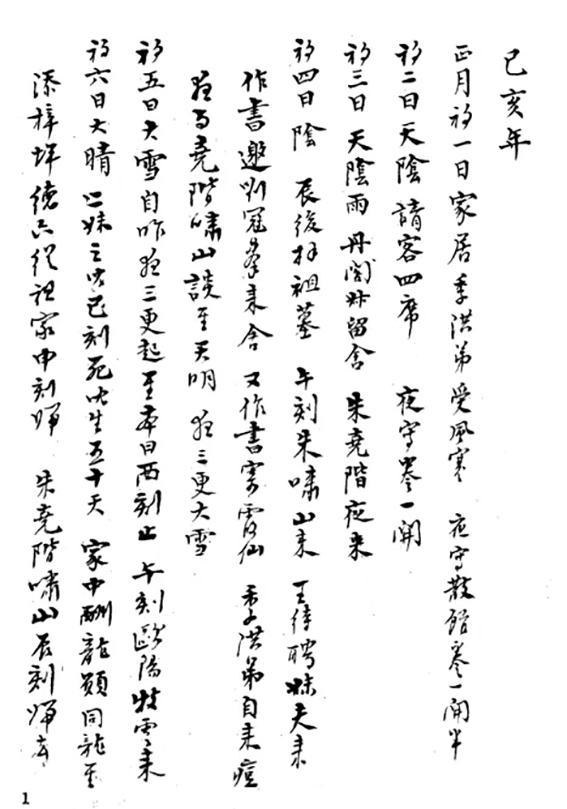 己亥年
正月初一日 家居 季洪弟受風寒 夜寫散館卷一開半
初二日 天陰 請客四席 夜寫卷一開
初三日 天陰雨 丹閣叔留舍 朱堯階夜來
初四日 陰 辰後拜祖墓 午刻朱嘯山來 王待聘妹夫來
作書邀劉冠羣來舍 又作書寄霞仙 季洪弟自來痘
夜與堯階嘯山談至天明 夜三更大雪
初五日 大雪自昨夜三更起至本日酉刻止 午刻歐陽牧雲來
初六日 大晴 二妹之女巳刻死 生五十天 家中酬龍願同龍至
添梓坪德六從祖家申刻歸 朱堯階嘯山辰刻歸去
1